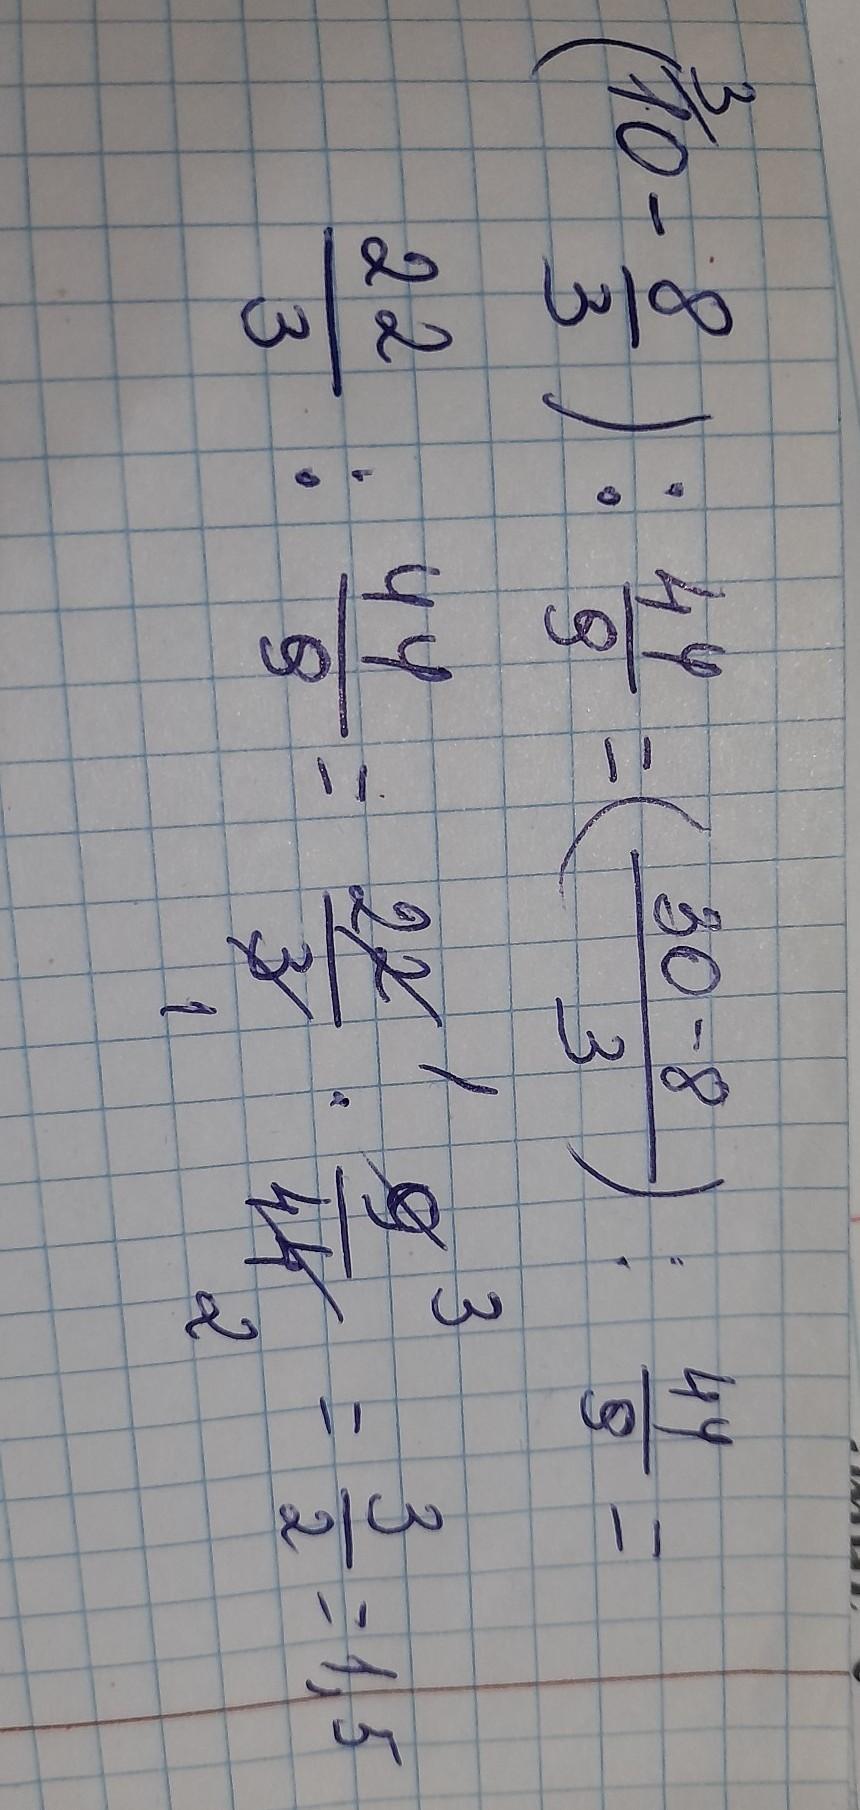 (10 3/ - 8/3) : 44/9 = (30-8/3) : 44/9 =
22/3 : 44/9 = 22 1/3 1 · 9 3/44 2 = 3/2 = 1,5